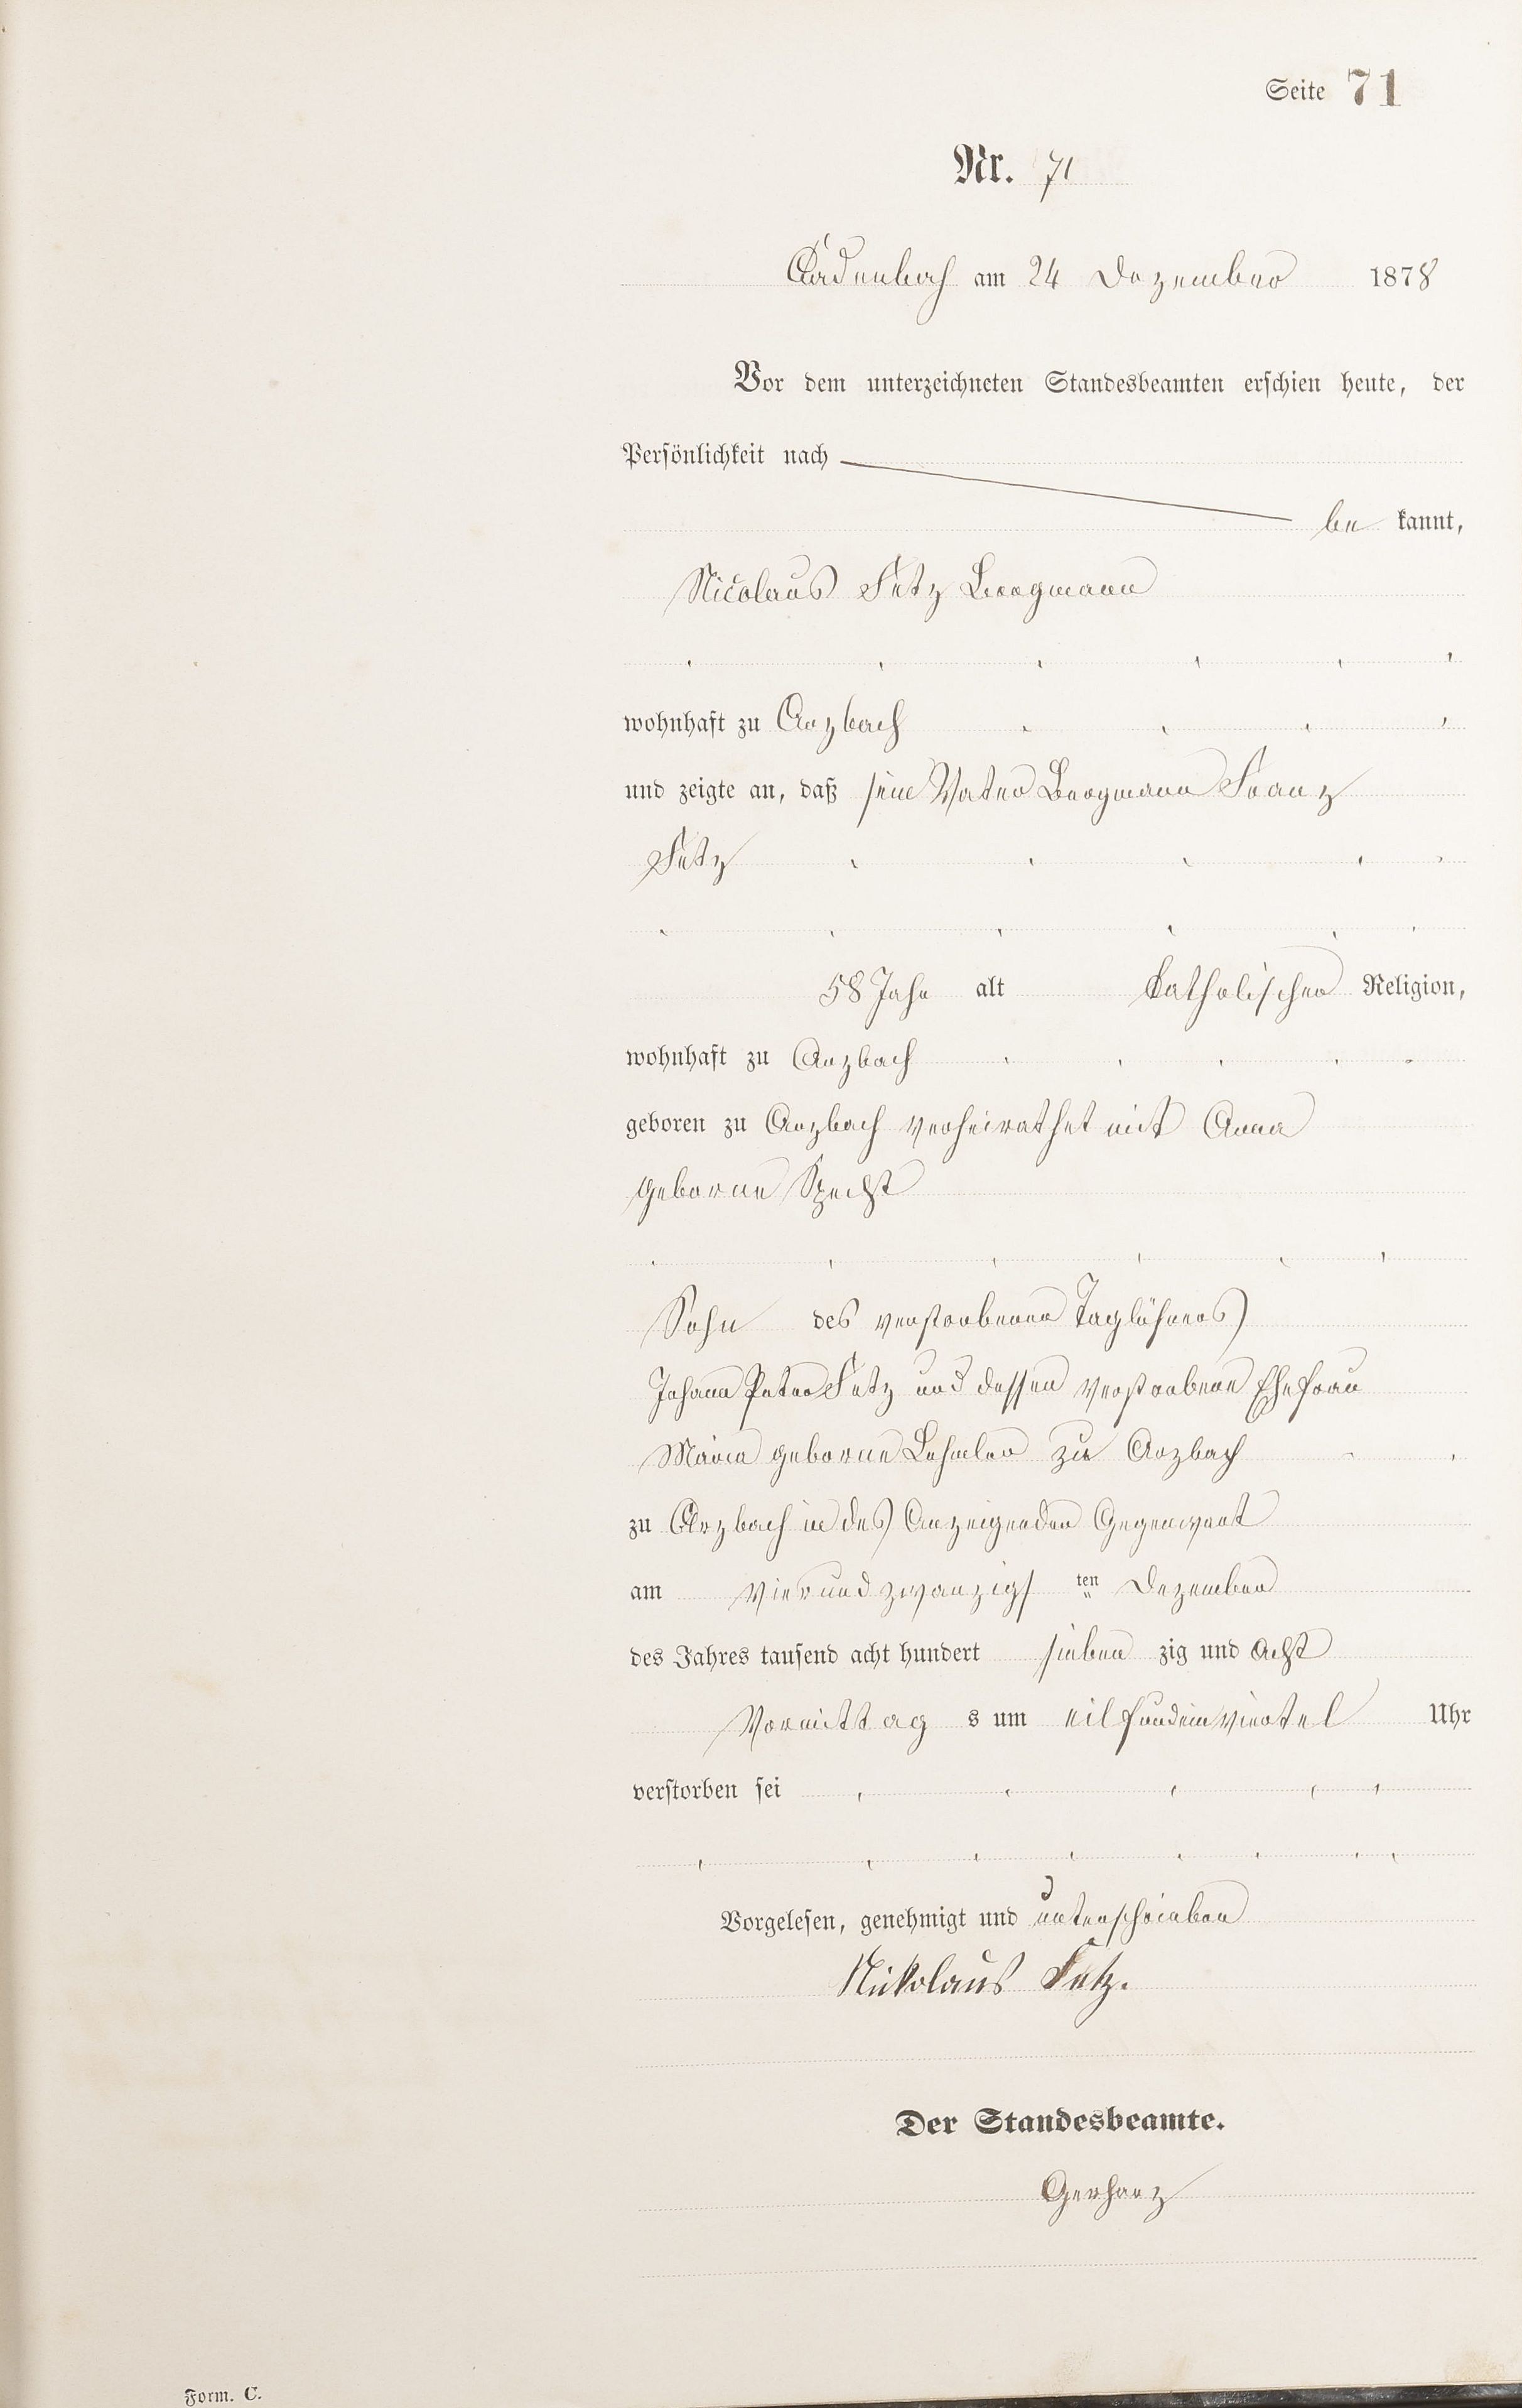 Seite 71
Nr. 71
Cadenbach am 24 Dezember 1878
Vor dem unterzeichneten Standesbeamten erschien heute, der
Persönlichkeit nach
be kannt,
Nicolaus Fetz Bergmann
wohnhaft zu Arzbach
und zeigte an, daß sein Vater Bergmann Franz
Fetz
58 Jahr alt katholischer Religion,
wohnhaft zu Arzbach
geboren zu Arzbach verheirathet mit Anna
geborne Specht
Sohn des verstorbenen Taglöhners
Johann Peter Fetz und dessen verstorbene Ehefrau
Maria geborne Lehmler zu Arzbach
zu Arzbach in des Anzeigenden Gegenwart
am vierundzwanzigs ten Dezember
des Jahres tausend acht hundert sieben zig und acht
Vormittag s um eilfundeinviertel Uhr
verstorben sei
Vorgelesen, genehmigt und unterschrieben
Nikolaus Fetz.
Der Standesbeamte.
Gerharz
Form. C.